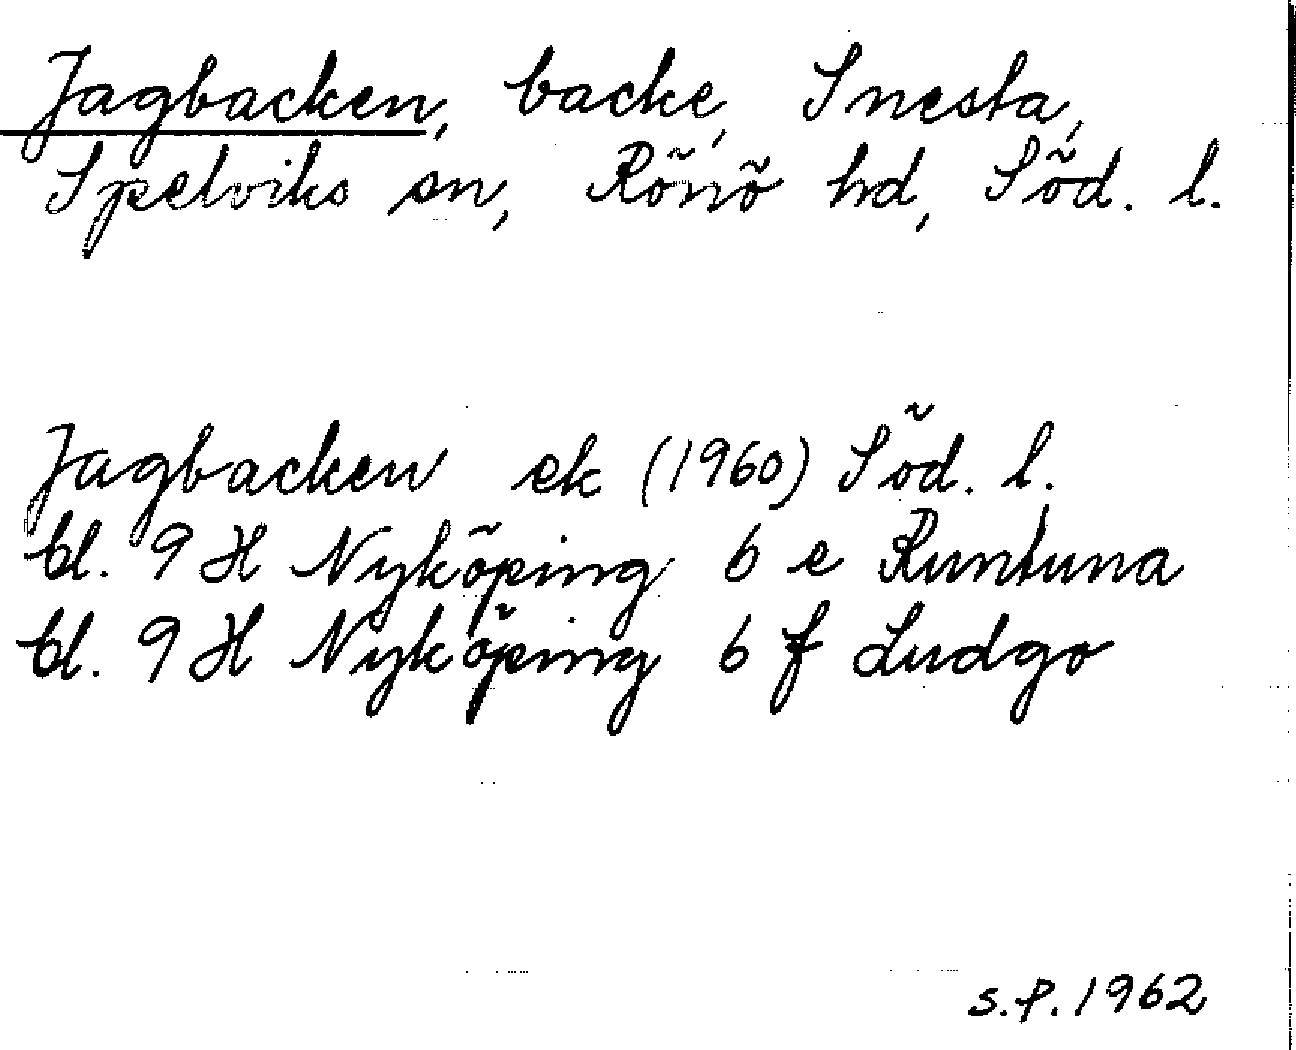 Jagbacken, backe, Snesta,
Spelviks sn, Rönö hd, Söd. l.
Jagbacken ek (1960) Söd. l.
bl. 9 H Nyköping 6 e Runtuna
bl. 9 H Nyköping 6 f Ludgo
S.P. 1962